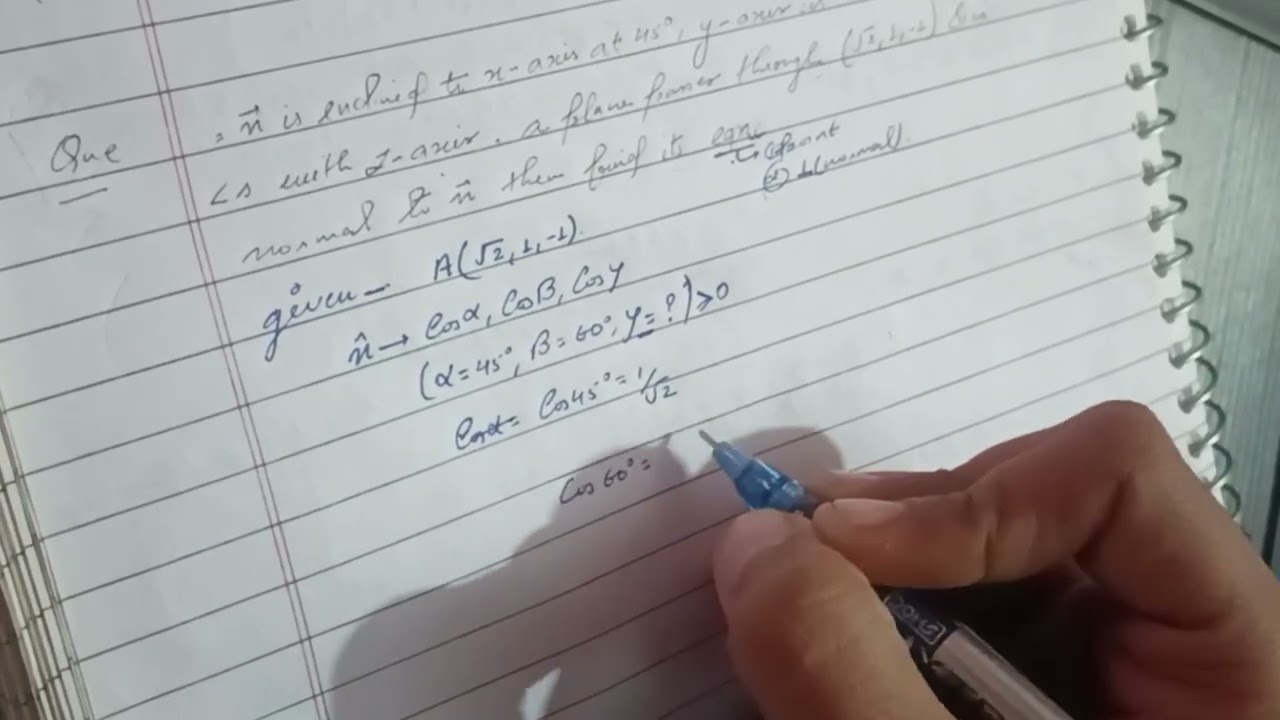 Que : n⃗ is inclined to x-axis at 45°, y-axis
∠s with z-axis. a plane passes through (√2, 1, -1) &
normal to n⃗ then find its eqn
① point
② (normal).
given - A(√2, 1, -1).
n̂ → Cosα, Cosβ, Cosγ
(α = 45°, β = 60°, γ = ?) > 0
Cosα = Cos45° = 1/√2
Cos 60° =